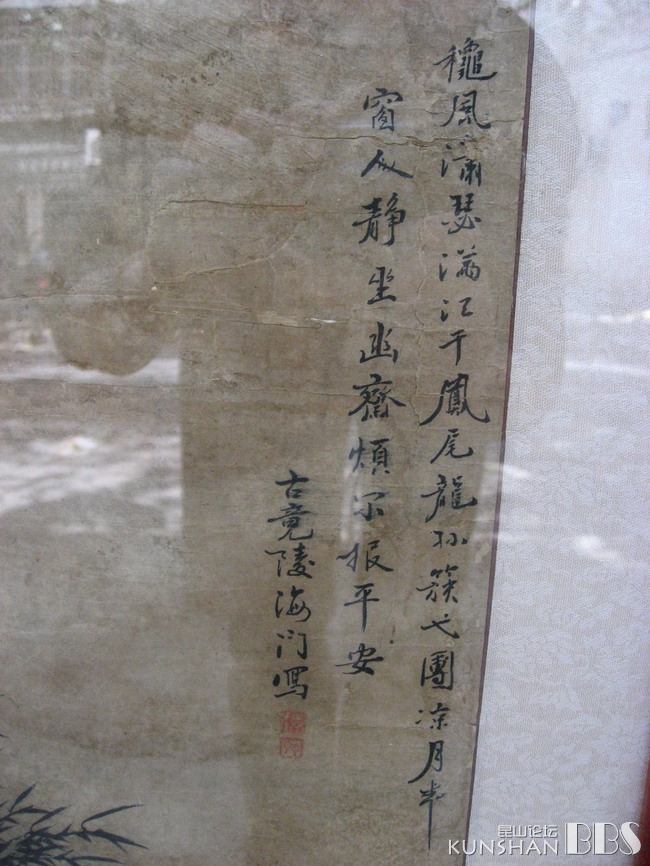 穐風瀟瑟滿江干鳳尾龍孫簇々團凉月半
窗人靜坐幽齋煩尔报平安
古竟陵海门寫
昆山论坛
KUNSHAN BBS